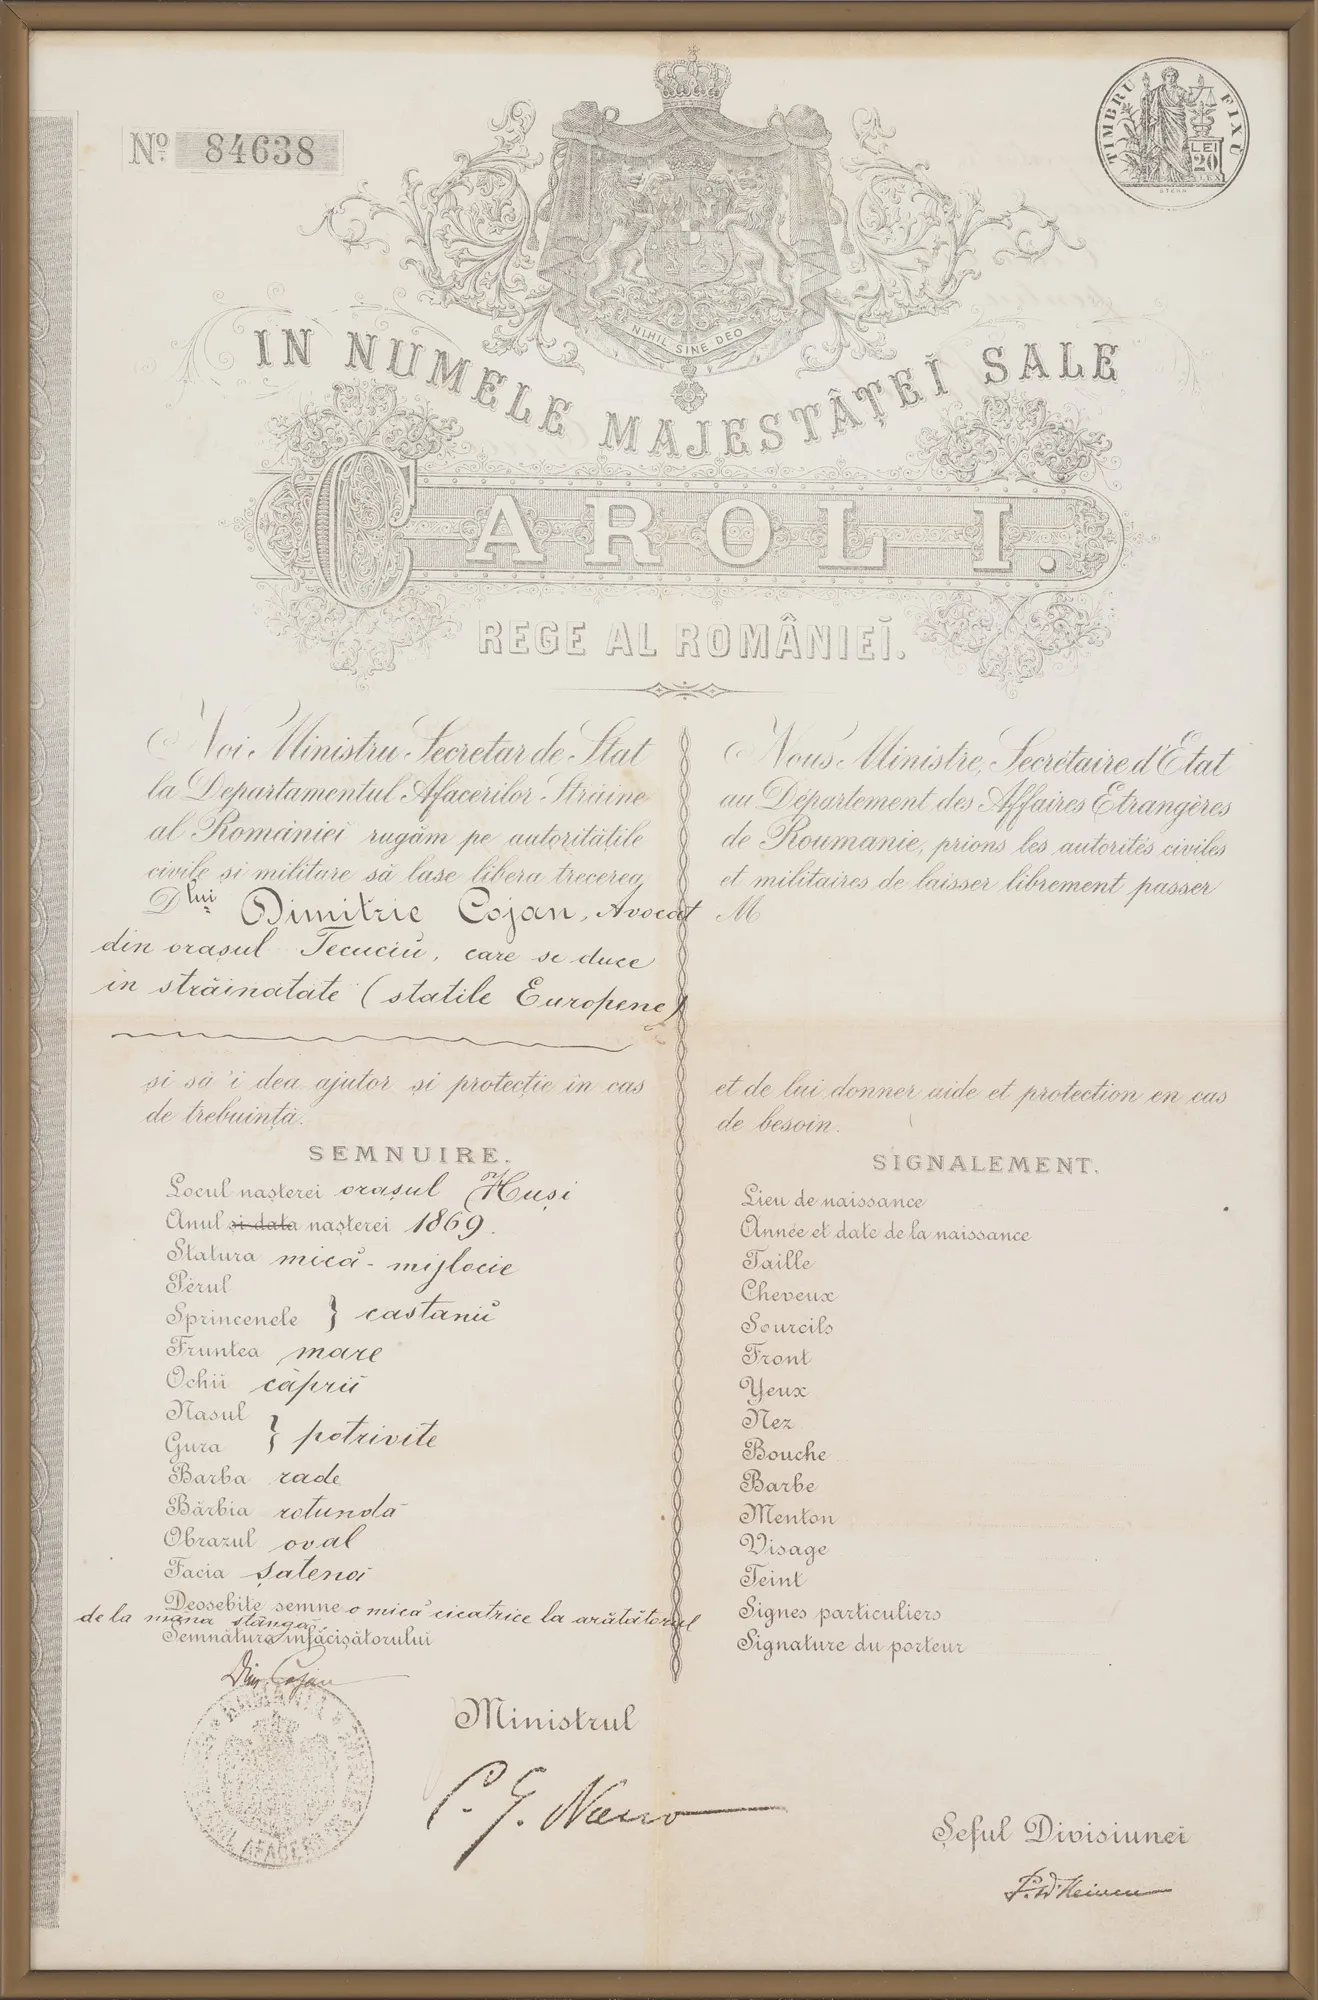 No 84638
TIMBRU FIXU
LEI
20
STERN
NIHIL SINE DEO
IN NUMELE MAJESTÂȚEĬ SALE
CAROL I.
REGE AL ROMÂNIEĬ.
Noi Ministru Secretar de Stat
la Departamentul Afacerilor Străine
al Românieĭ rugăm pe autoritățile
civile și militare să lase libera trecerea
Dlui Dimitrie Cojan, Avocat
din orașul Tecuciŭ, care se duce
in străinatate (statile Europene)
și să 'i dea ajutor și protecție in cas
de trebuință.
SEMNUIRE.
Locul nașterei orașul Huși
Anul și data nașterei 1869.
Statura mică - mijlocie
Pĕrul
Sprincenele } castaniĭ
Fruntea mare
Ochiĭ căpriĭ
Nasul
Gura } potrivite
Barba rade
Bărbia rotundă
Obrazul oval
Facia șatenă
Deosebite semne o mică cicatrice la arătătorul
de la mâna stângă.
Semnătura infăcișătorului
Dim. Cojan
Nous Ministre, Secrétaire d'Etat
au Département des Affaires Etrangères
de Roumanie, prions les autorités civiles
et militaires de laisser librement passer
M
et de lui donner aide et protection en cas
de besoin.
SIGNALEMENT.
Lieu de naissance
Année et date de la naissance
Taille
Cheveux
Sourcils
Front
Yeux
Nez
Bouche
Barbe
Menton
Visage
Teint
Signes particuliers
Signature du porteur
Ministrul
Șeful Divisiunei